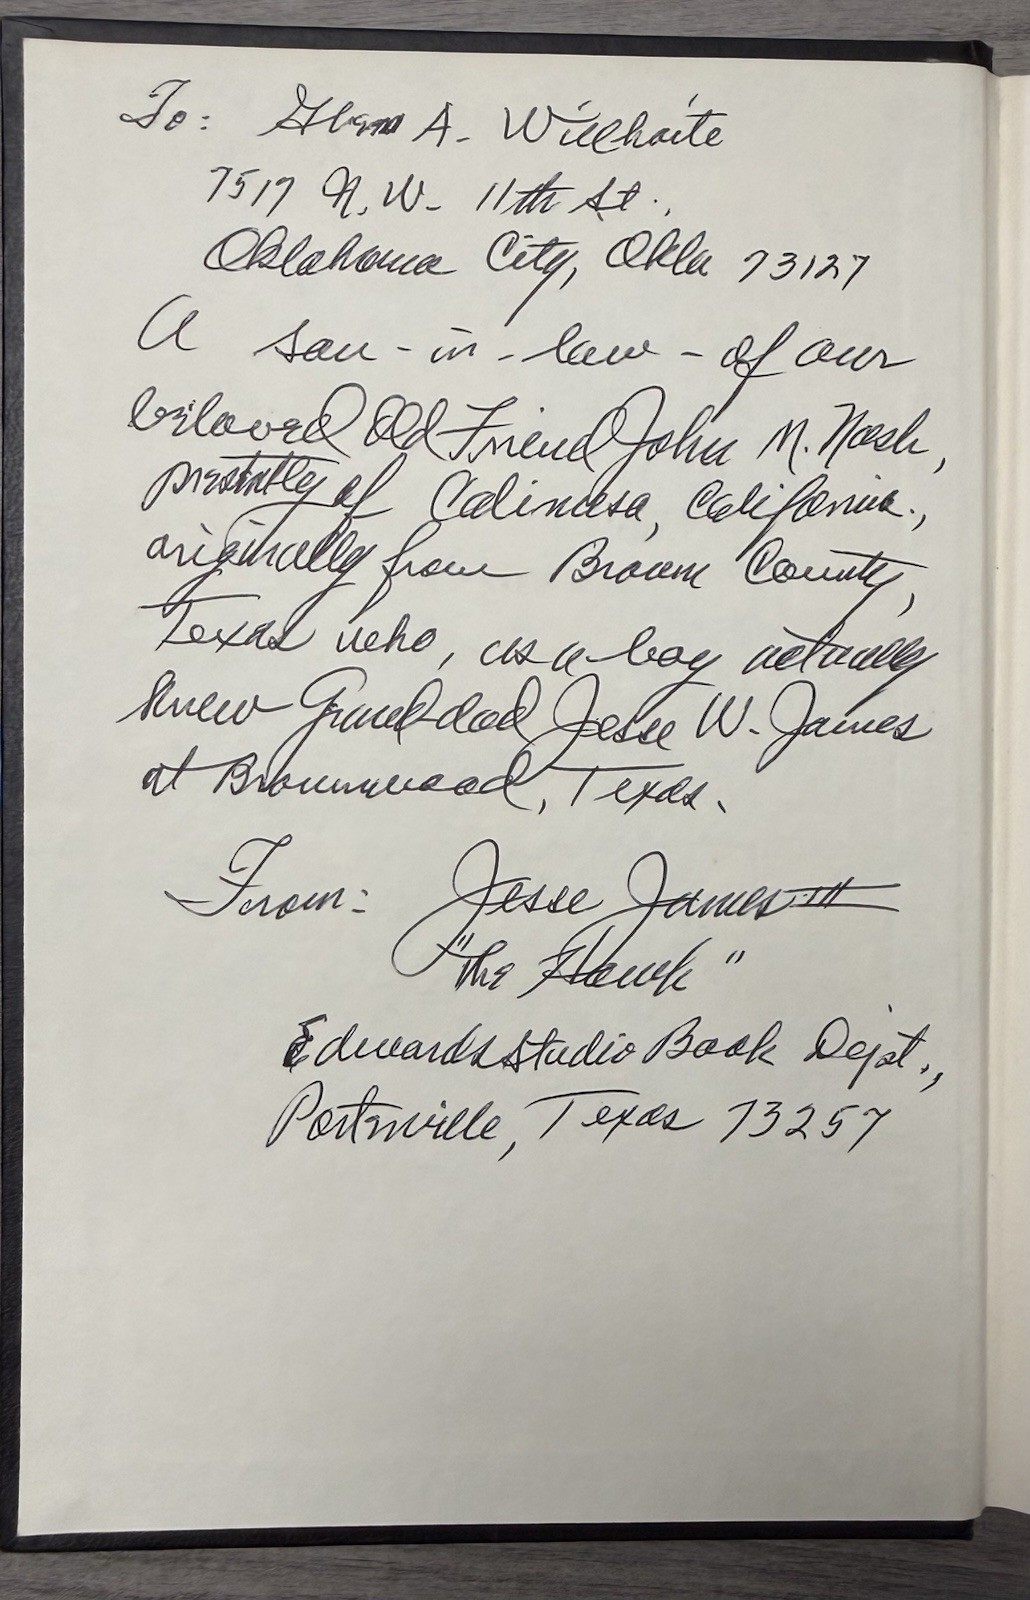 To: Glenn A. Willhoite
7517 N.W. 11th St.,
Oklahoma City, Okla 73127
A son-in-law-of our
beloved Old Friend John M. Nash,
presently of Calimesa, California.,
originally from Brown County,
Texas who, as a boy actually
knew Grand-dad Jesse W. James
at Brownwood, Texas.
From: Jesse James III
"The Hawk"
Edwards Studio Book Dept.,
Porterville, Texas 73257